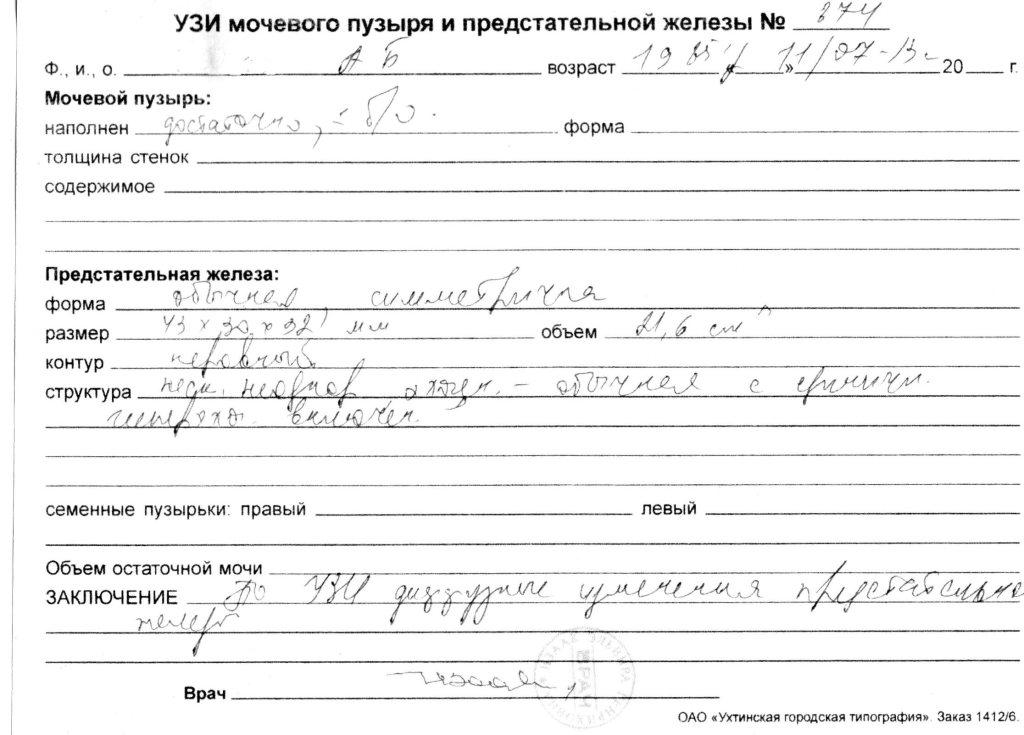 УЗИ мочевого пузыря и предстательной железы № 374
Ф., и., о. А Б возраст 1985 г 11/07-13г 20 г.
Мочевой пузырь:
наполнен достаточно, = б/о. форма
толщина стенок
содержимое
Предстательная железа:
форма обычная, симметрична
размер 43 х 30 х 32 мм объем 21,6 см
контур неровный
структура неодноор эхоген. – обычная с единичн.
гиперэхо. включен.
семенные пузырьки: правый левый
Объем остаточной мочи
ЗАКЛЮЧЕНИЕ По УЗИ диффузные изменения предстательной
железы
Врач
ВРАЧ
ОАО «Ухтинская городская типография». Заказ 1412/6.